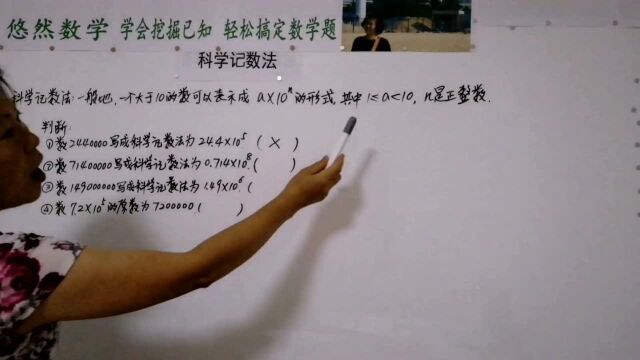 悠然数学 学会挖掘已知 轻松搞定数学题
科学记数法
科学记数法:一般地,一个大于10的数可以表示成 a×10ⁿ的形式,其中 1≤a<10, n是正整数.
判断:
①数2440000写成科学记数法为 24.4×10⁵ (×)
②数71400000写成科学记数法为 0.714×10⁸ ( )
③数14900000写成科学记数法为 1.49×10⁶ (
④数 7.2×10⁵的原数为 7200000 ( )